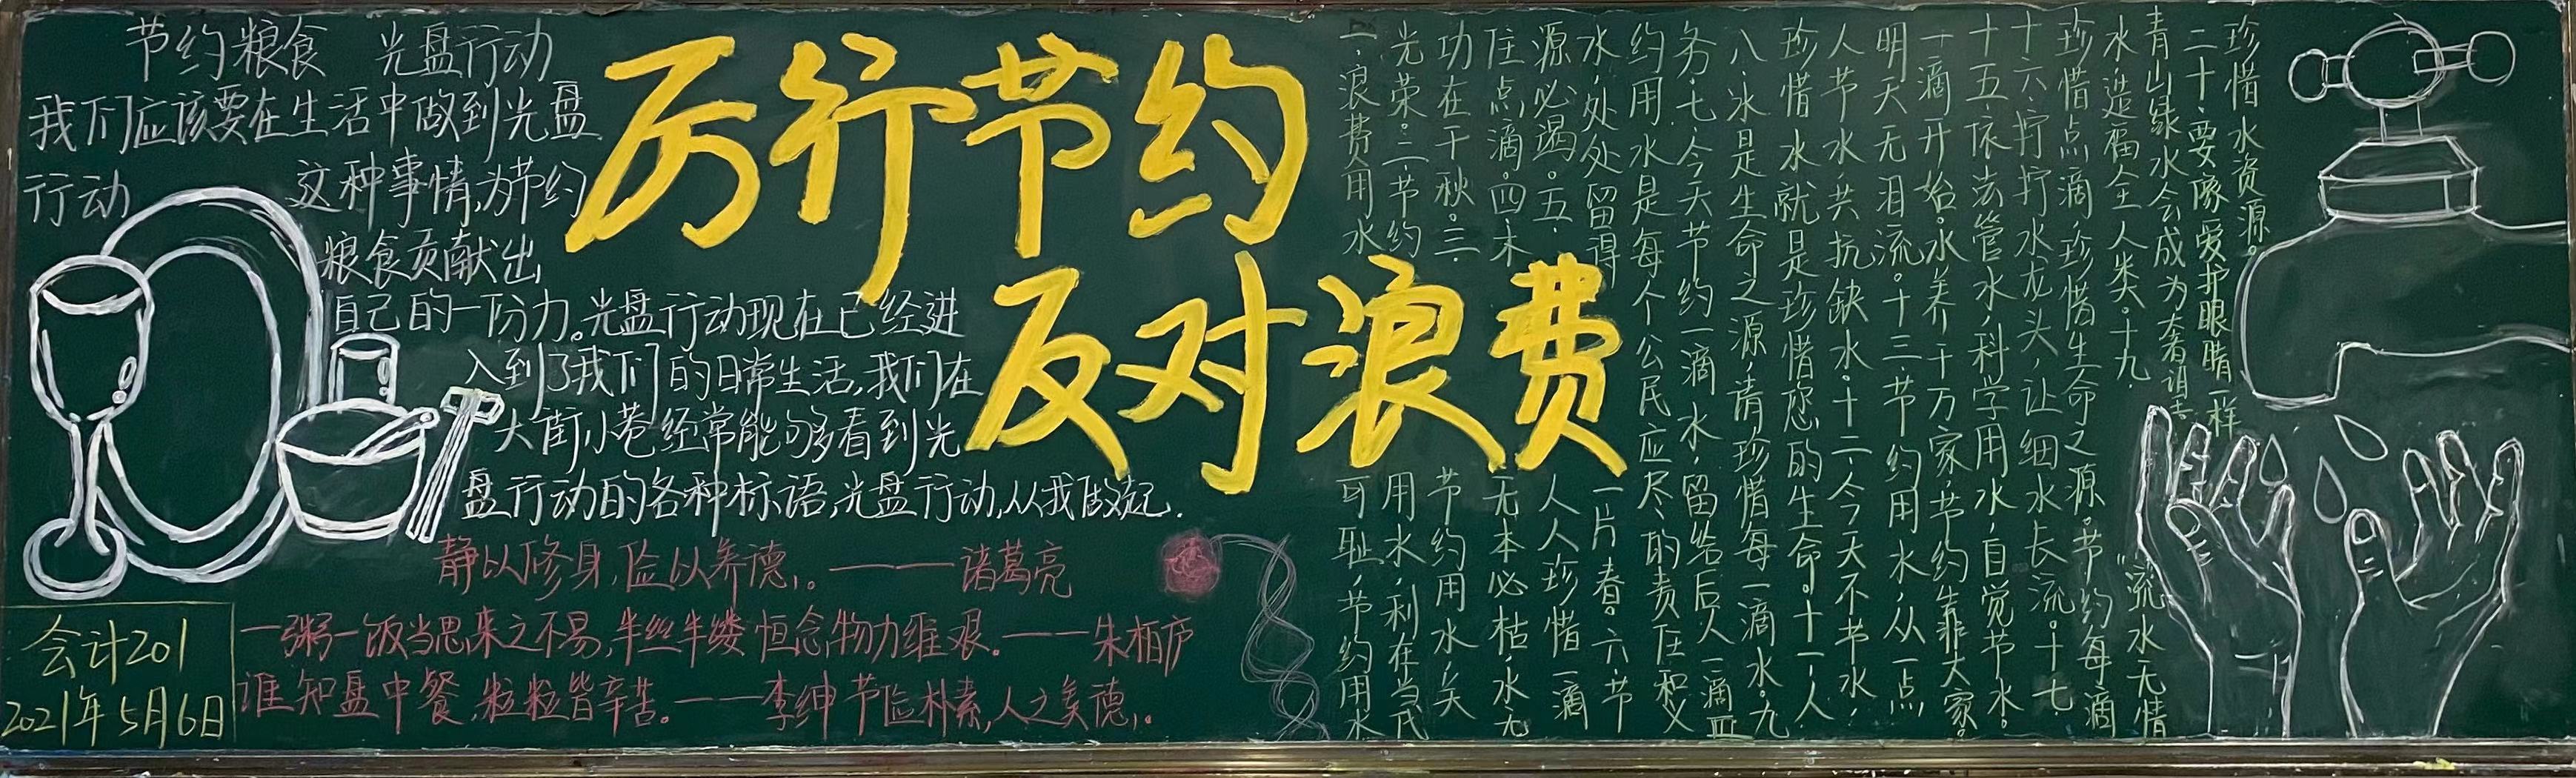 节约粮食 光盘行动
我们应该要在生活中做到光盘
行动 这种事情,为节约
粮食贡献出
自己的一份力。光盘行动现在已经进
入到了我们的日常生活,我们在
大街小巷经常能够看到光
盘行动的各种标语,光盘行动,从我做起.
静以修身,俭以养德,。——诸葛亮
一粥一饭当思来之不易,半丝半缕恒念物力维艰。——朱柏庐
谁知盘中餐,粒粒皆辛苦。——李绅 节俭朴素,人之美德,.
会计201
2021年5月6日
厉行节约
反对浪费
一、浪费用水可耻,节约用水
光荣。二、节约用水,利在当代
功在千秋。三、节约用水,关
住点滴。四、木无本必枯,水无
源必竭。五、人人珍惜一滴
水,处处留得一片春。六、节
约用水是每个公民应尽的责任和义
务。七、今天节约一滴水,留给后人一滴血
八、水是生命之源,请珍惜每一滴水。九
珍惜水就是珍惜您的生命。十一、人
人节水,共抗缺水。十二、今天不节水,
明天无泪流。十三、节约用水,从一点
一滴开始。水养千万家,节约靠大家。
十五、依法管水,科学用水,自觉节水。
十六、拧拧水龙头,让细水长流。十七
珍惜点滴,珍惜生命之源。节约每滴
水造福全人类。十九、“流水无情
青山绿水会成为奢语
二十、要像爱护眼睛一样
珍惜水资源。